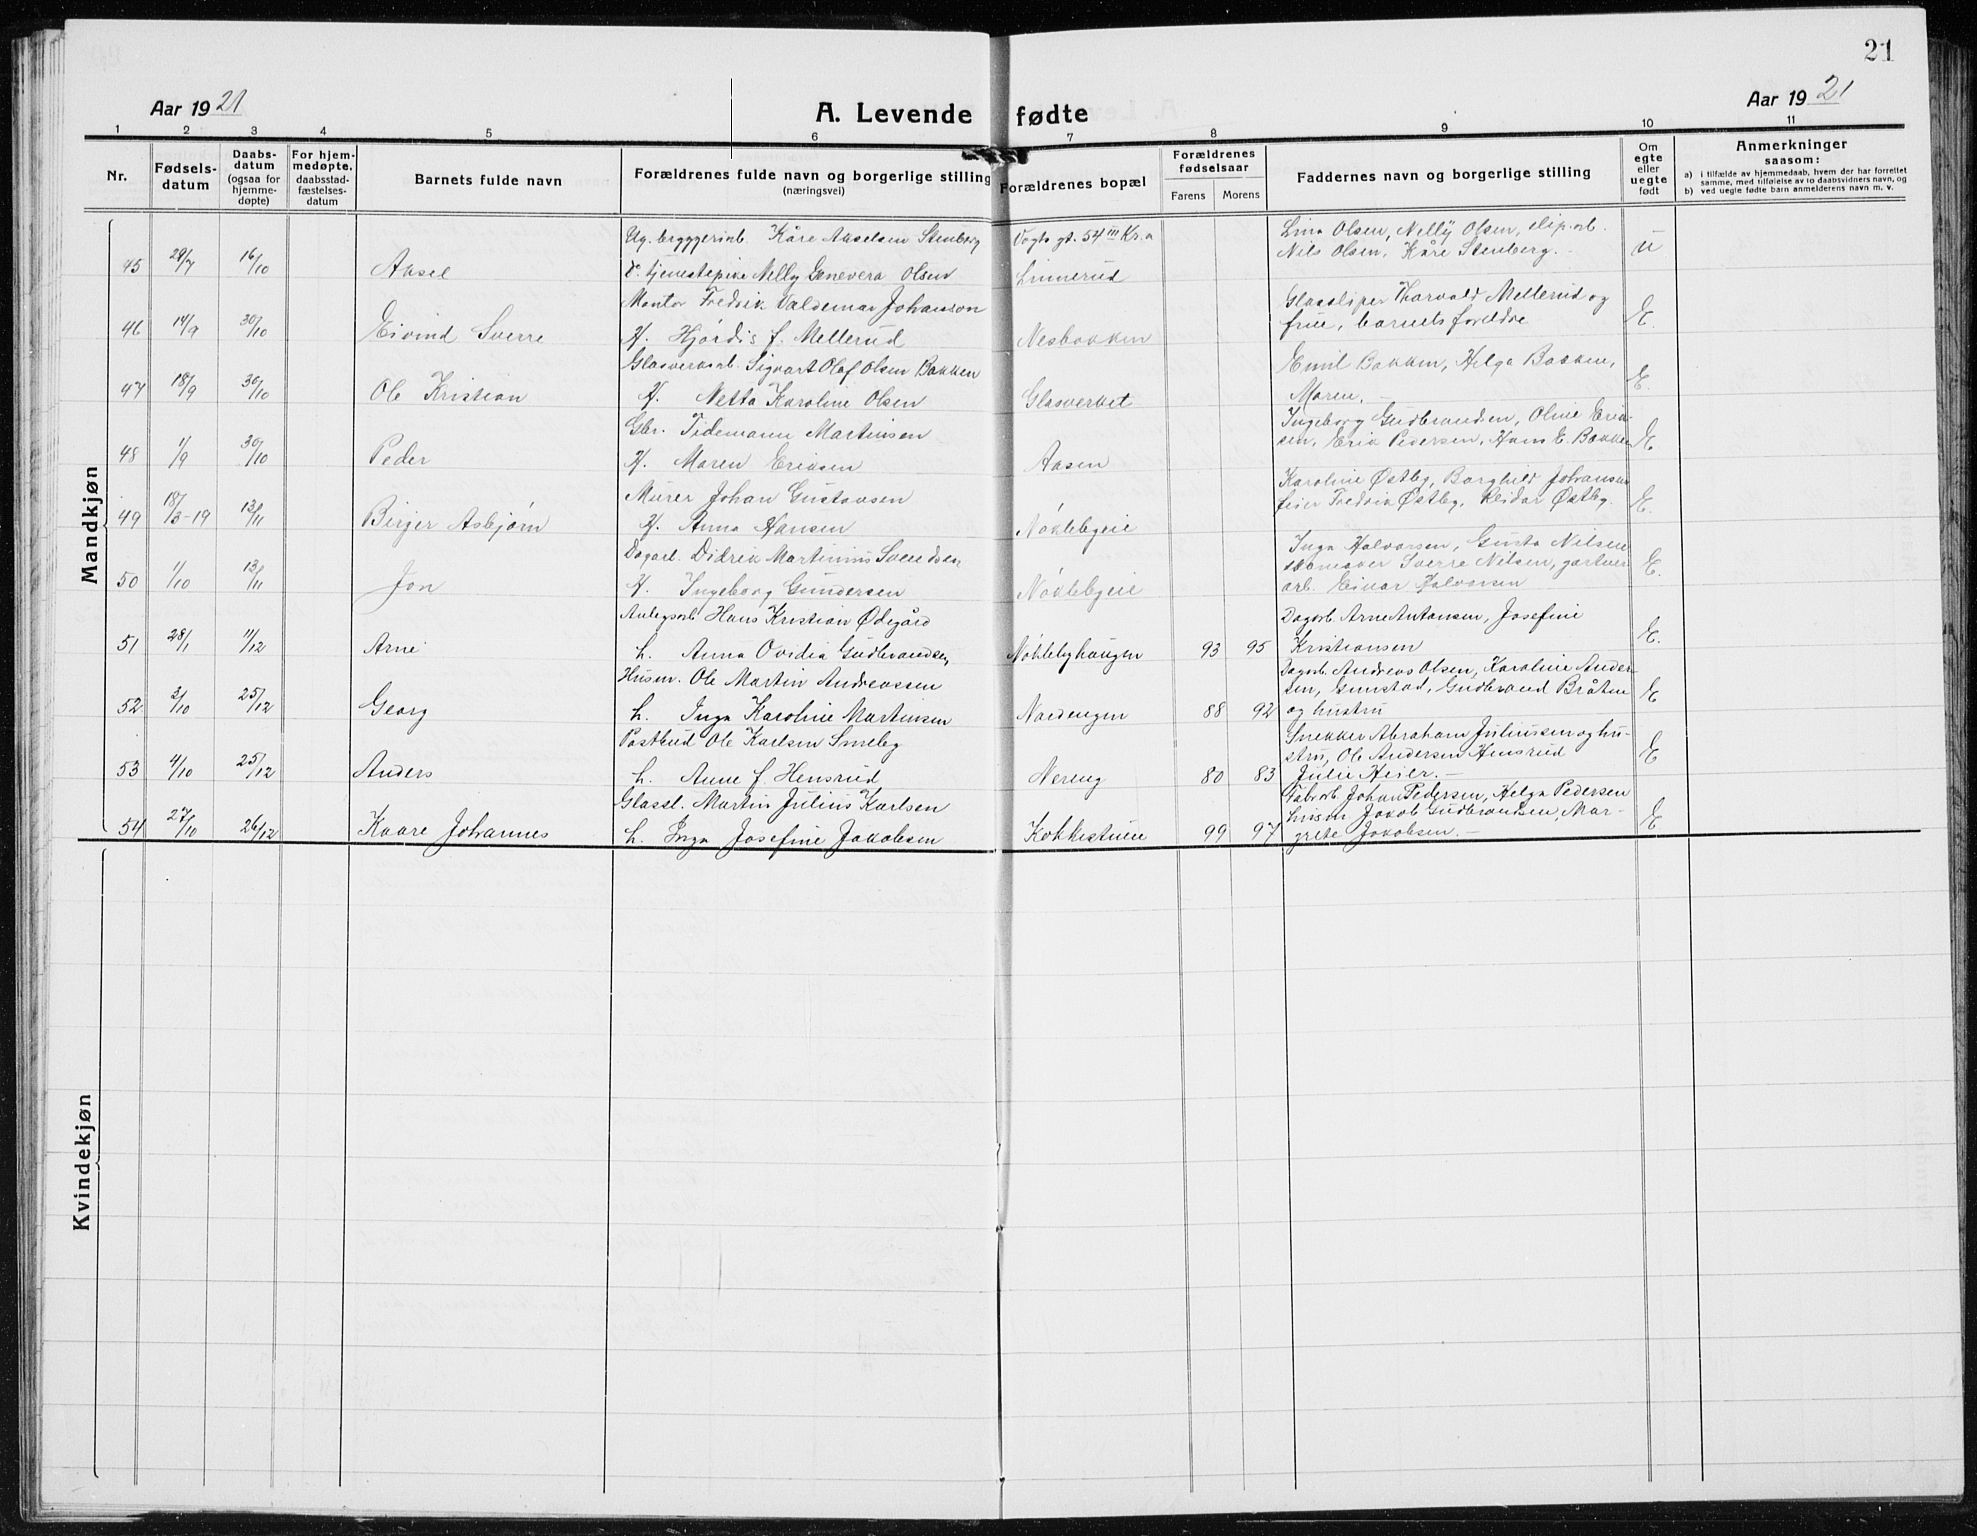 21
Aar 1921
A. Levende fødte
Aar 1921
1 2 3 4 5 6 7 8 9 10 11
Nr.
Fødselsdatum
Daabsdatum (ogsaa for hjemmedøpte)
For hjemmedøpte, daabsstadfæstelsesdatum
Barnets fulde navn
Forældrenes fulde navn og borgerlige stilling (næringsvei)
Forældrenes bopæl
Forældrenes fødselsaar
Farens Morens
Faddernes navn og borgerlige stilling
Om egte eller uegte født
Anmerkninger
saasom:
a) i tilfælde av hjemmedaab, hvem der har forrettet samme, med tilføielse av to daabsvidners navn, og
b) ved uegte fødte barn anmelderens navn m. v.
Mandkjøn
Ug. bryggeriarb. Kåre Akselsen Stenberg Vogts gt. 54 III Kr.a Lina Olsen, Nelly Olsen, sliparb.
45 29/7 16/10 Aksel P. tjenestepike Nelly Genevera Olsen Linnerud Nils Olsen, Kåre Stenberg. - U
Montør Fredrik Valdemar Johanson Glassliper Harvald Mellerud og
46 14/9 30/10 Eivind Sverre H. Hjördis f. Mellerud Nesbakken frue, barnets foreldre E.
Glasverksarb. Sigvart Olaf Olsen Bakken Emil Bakken, Helga Bakken,
47 18/9 30/10 Ole Kristian H. Netta Karoline Olsen Glasverket Moren. - E.
Gbr. Tidemann Martinsen Ingeborg Gudbrandsen, Oline Erik-
48 1/9 30/10 Peder H. Maren Eriksen Aasen sen, Erik Pedersen, Hans E. Bakken E
Murer Johan Gustavsen Karoline Østby, Borghild Johansen
49 18/3-19 13/11 Birger Asbjørn H. Anna Hansen Nøklebyeie feier Fredrik Østby, Reidar Østby. E.
Dagarb. Didrik Martinius Svendsen Inga Halvorsen, Gusta Nilsen
50 1/10 13/11 Jon H. Ingeborg Gundersen Nøklebyeie skomaker Sverre Nilsen, gartner
arb. Einar Halvorsen E.
Anlegsarb. Hans Kristian Ødegård Dagarb. Arne Antonsen, Josefine
51 28/1 11/12 Arne h. Anna Ovidia Gudbrandsen Nøklebyhaugen 93 95 Kristiansen E.
Husm. Ole Martin Andreassen Dagarb. Andreas Olsen, Karoline Ander-
sen, Gunstad, Gudbrand Bråten
52 3/10 25/12 Georg h. Inga Karoline Martinsen Nordengen 88 92 og hustru E
Postbud Ole Karlsen Smeby Snekker Abraham Juliussen og hu-
stru, Ole Andersen Hensrud
53 4/10 25/12 Anders h. Anne f. Hensrud Nereng 80 83 Julie Heier. - E
Glassl. Martin Julius Karlsen Fabarb. Johan Pedersen, Helga Pedersen
Jakob Gudbrandsen, Mar-
54 27/10 26/12 Kaare Johannes h. Inga Josefine Jakobsen Kokkestuen 99 97 grete Jakobsen. - E
Kvindekjøn